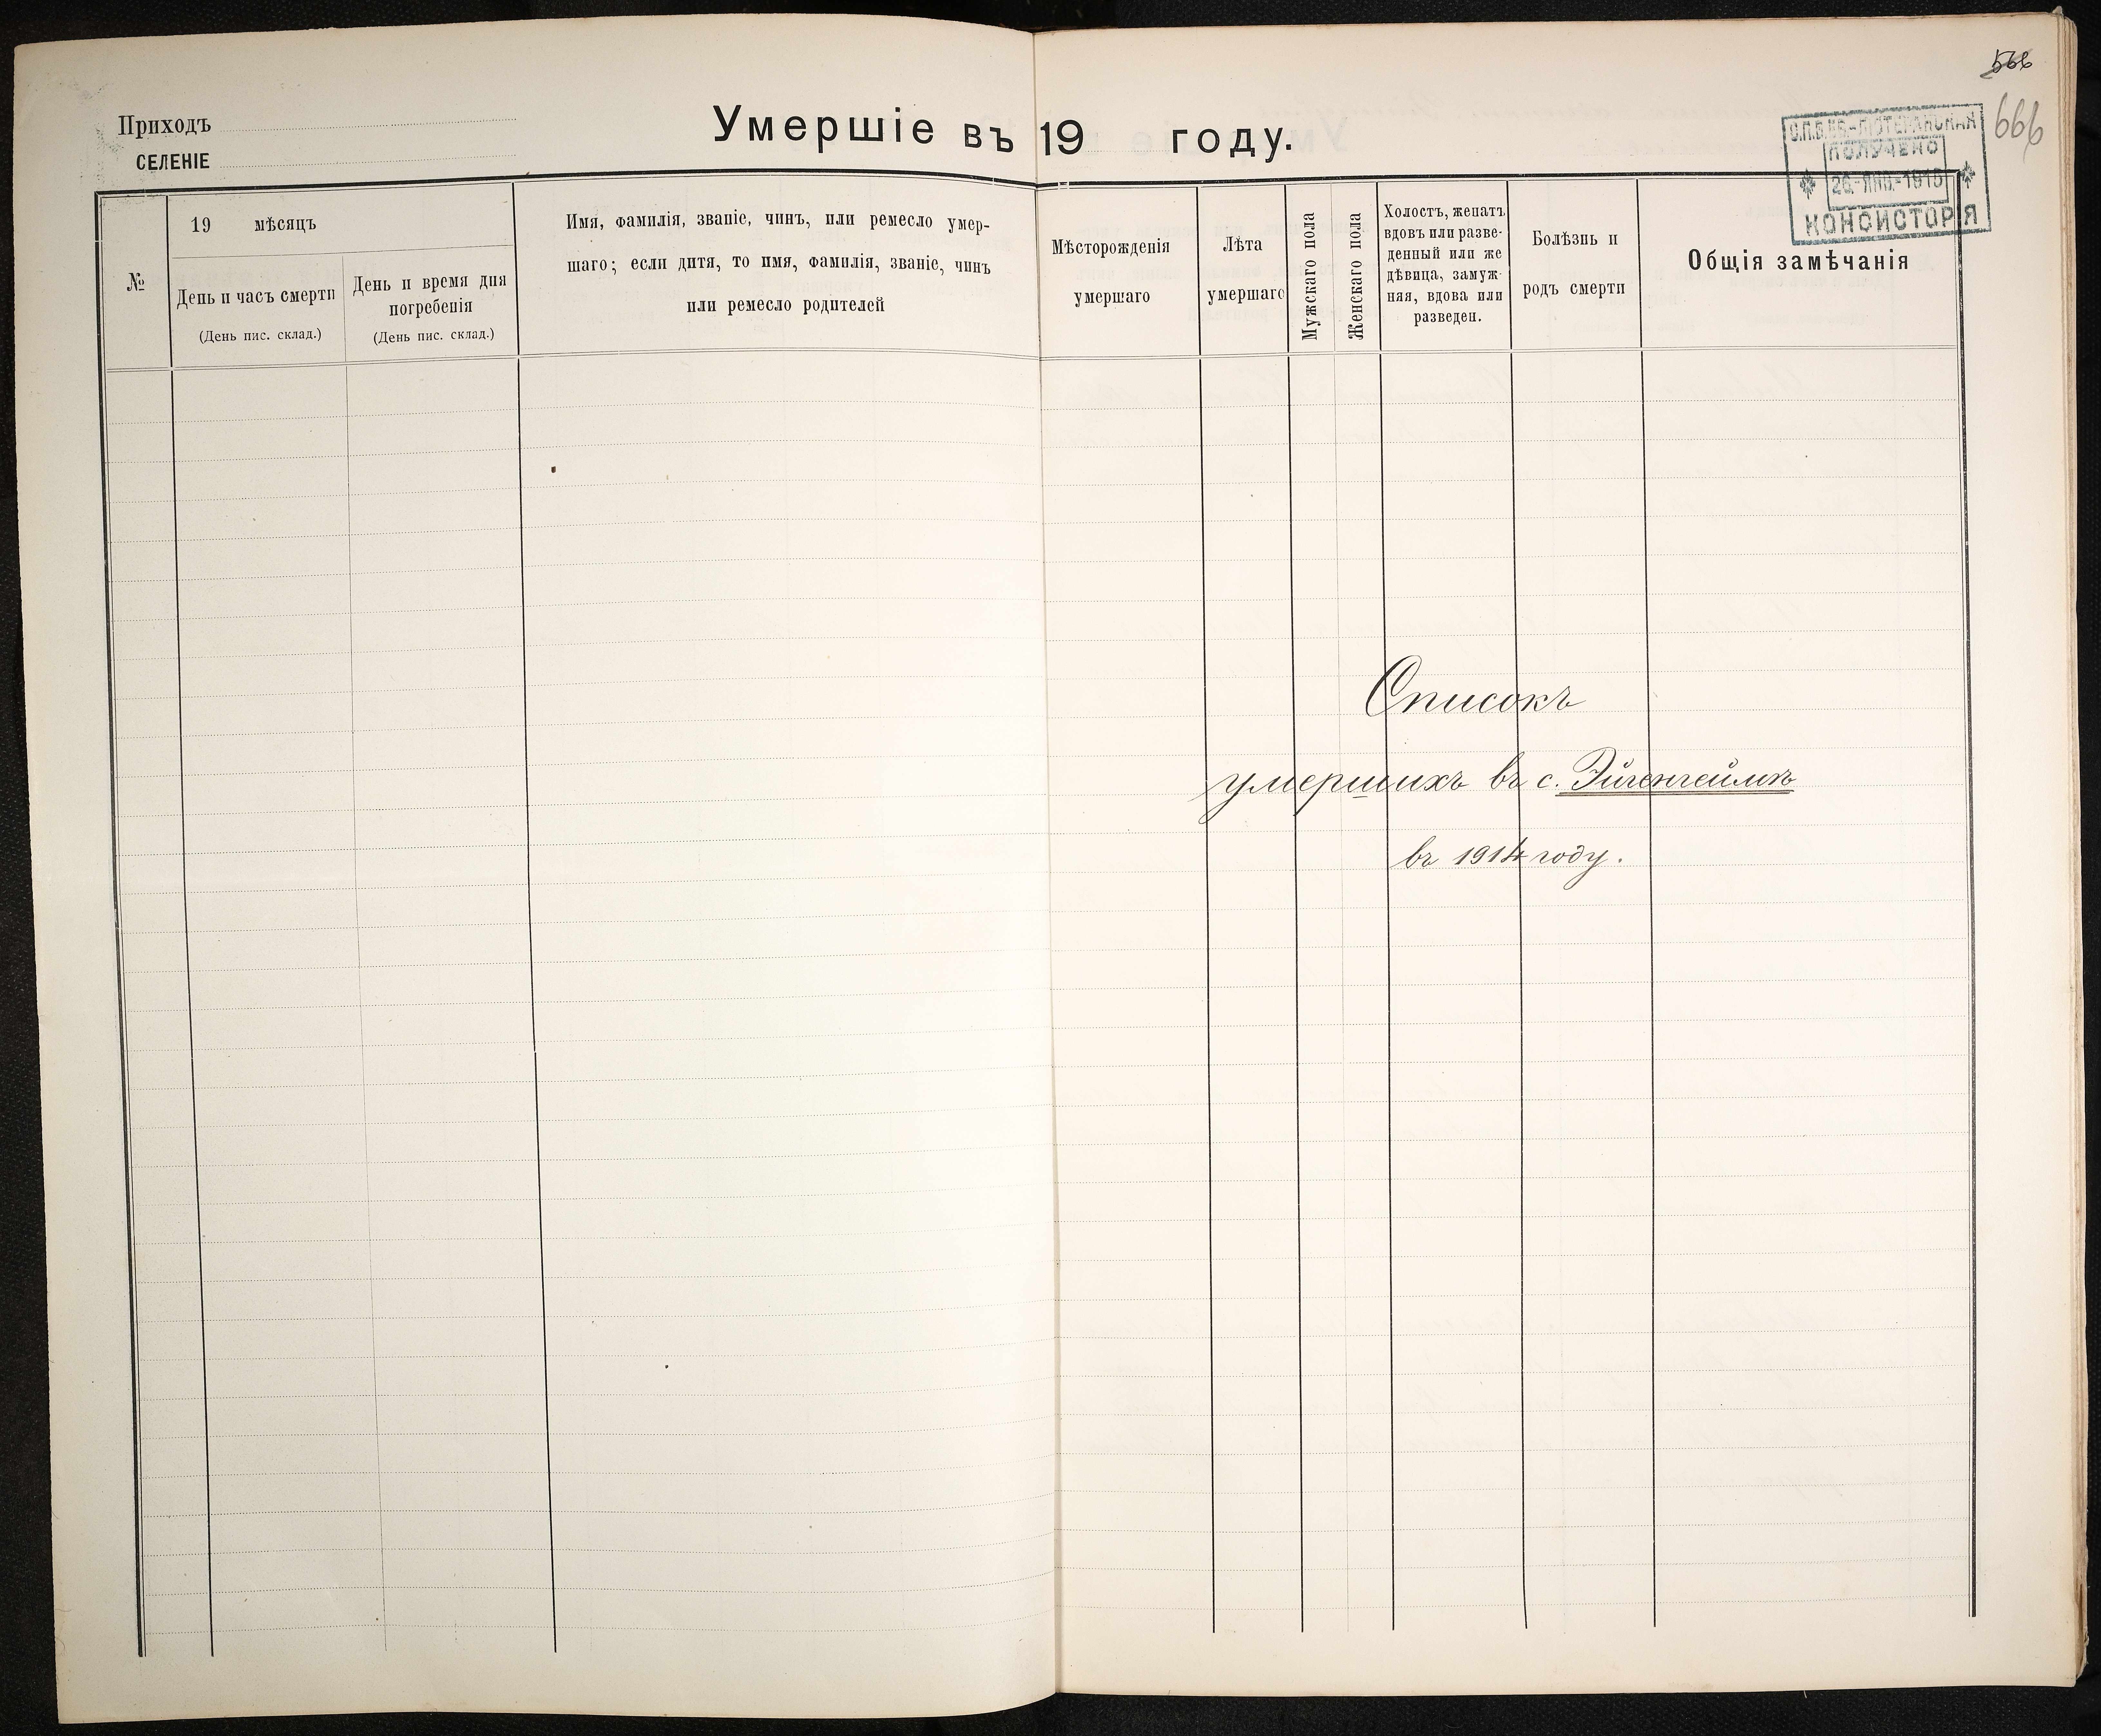 566
666
Приходъ
СЕЛЕНІЕ
Умершіе въ 19 году.
С.П.Б. ЕВ.-ЛЮТЕРАНСКАЯ
ПОЛУЧЕНО
26.-ЯНВ.-1915
КОНСИСТОРІЯ
№
19 мѣсяцъ
День и часъ смерти
(День пис. склад.)
День и время дня
погребенія
(День пис. склад.)
Имя, фамилія, званіе, чинъ, или ремесло умер-
шаго; если дитя, то имя, фамилія, званіе, чинъ
или ремесло родителей
Мѣсторожденія
умершаго
Лѣта
умершаго
Мужскаго пола
Женскаго пола
Холостъ, женатъ
вдовъ или разве-
денный или же
дѣвица, замуж-
няя, вдова или
разведен.
Болѣзнь и
родъ смерти
Общія замѣчанія
Списокъ
умершихъ въ с. Эйгенгеймъ
въ 1914 году.